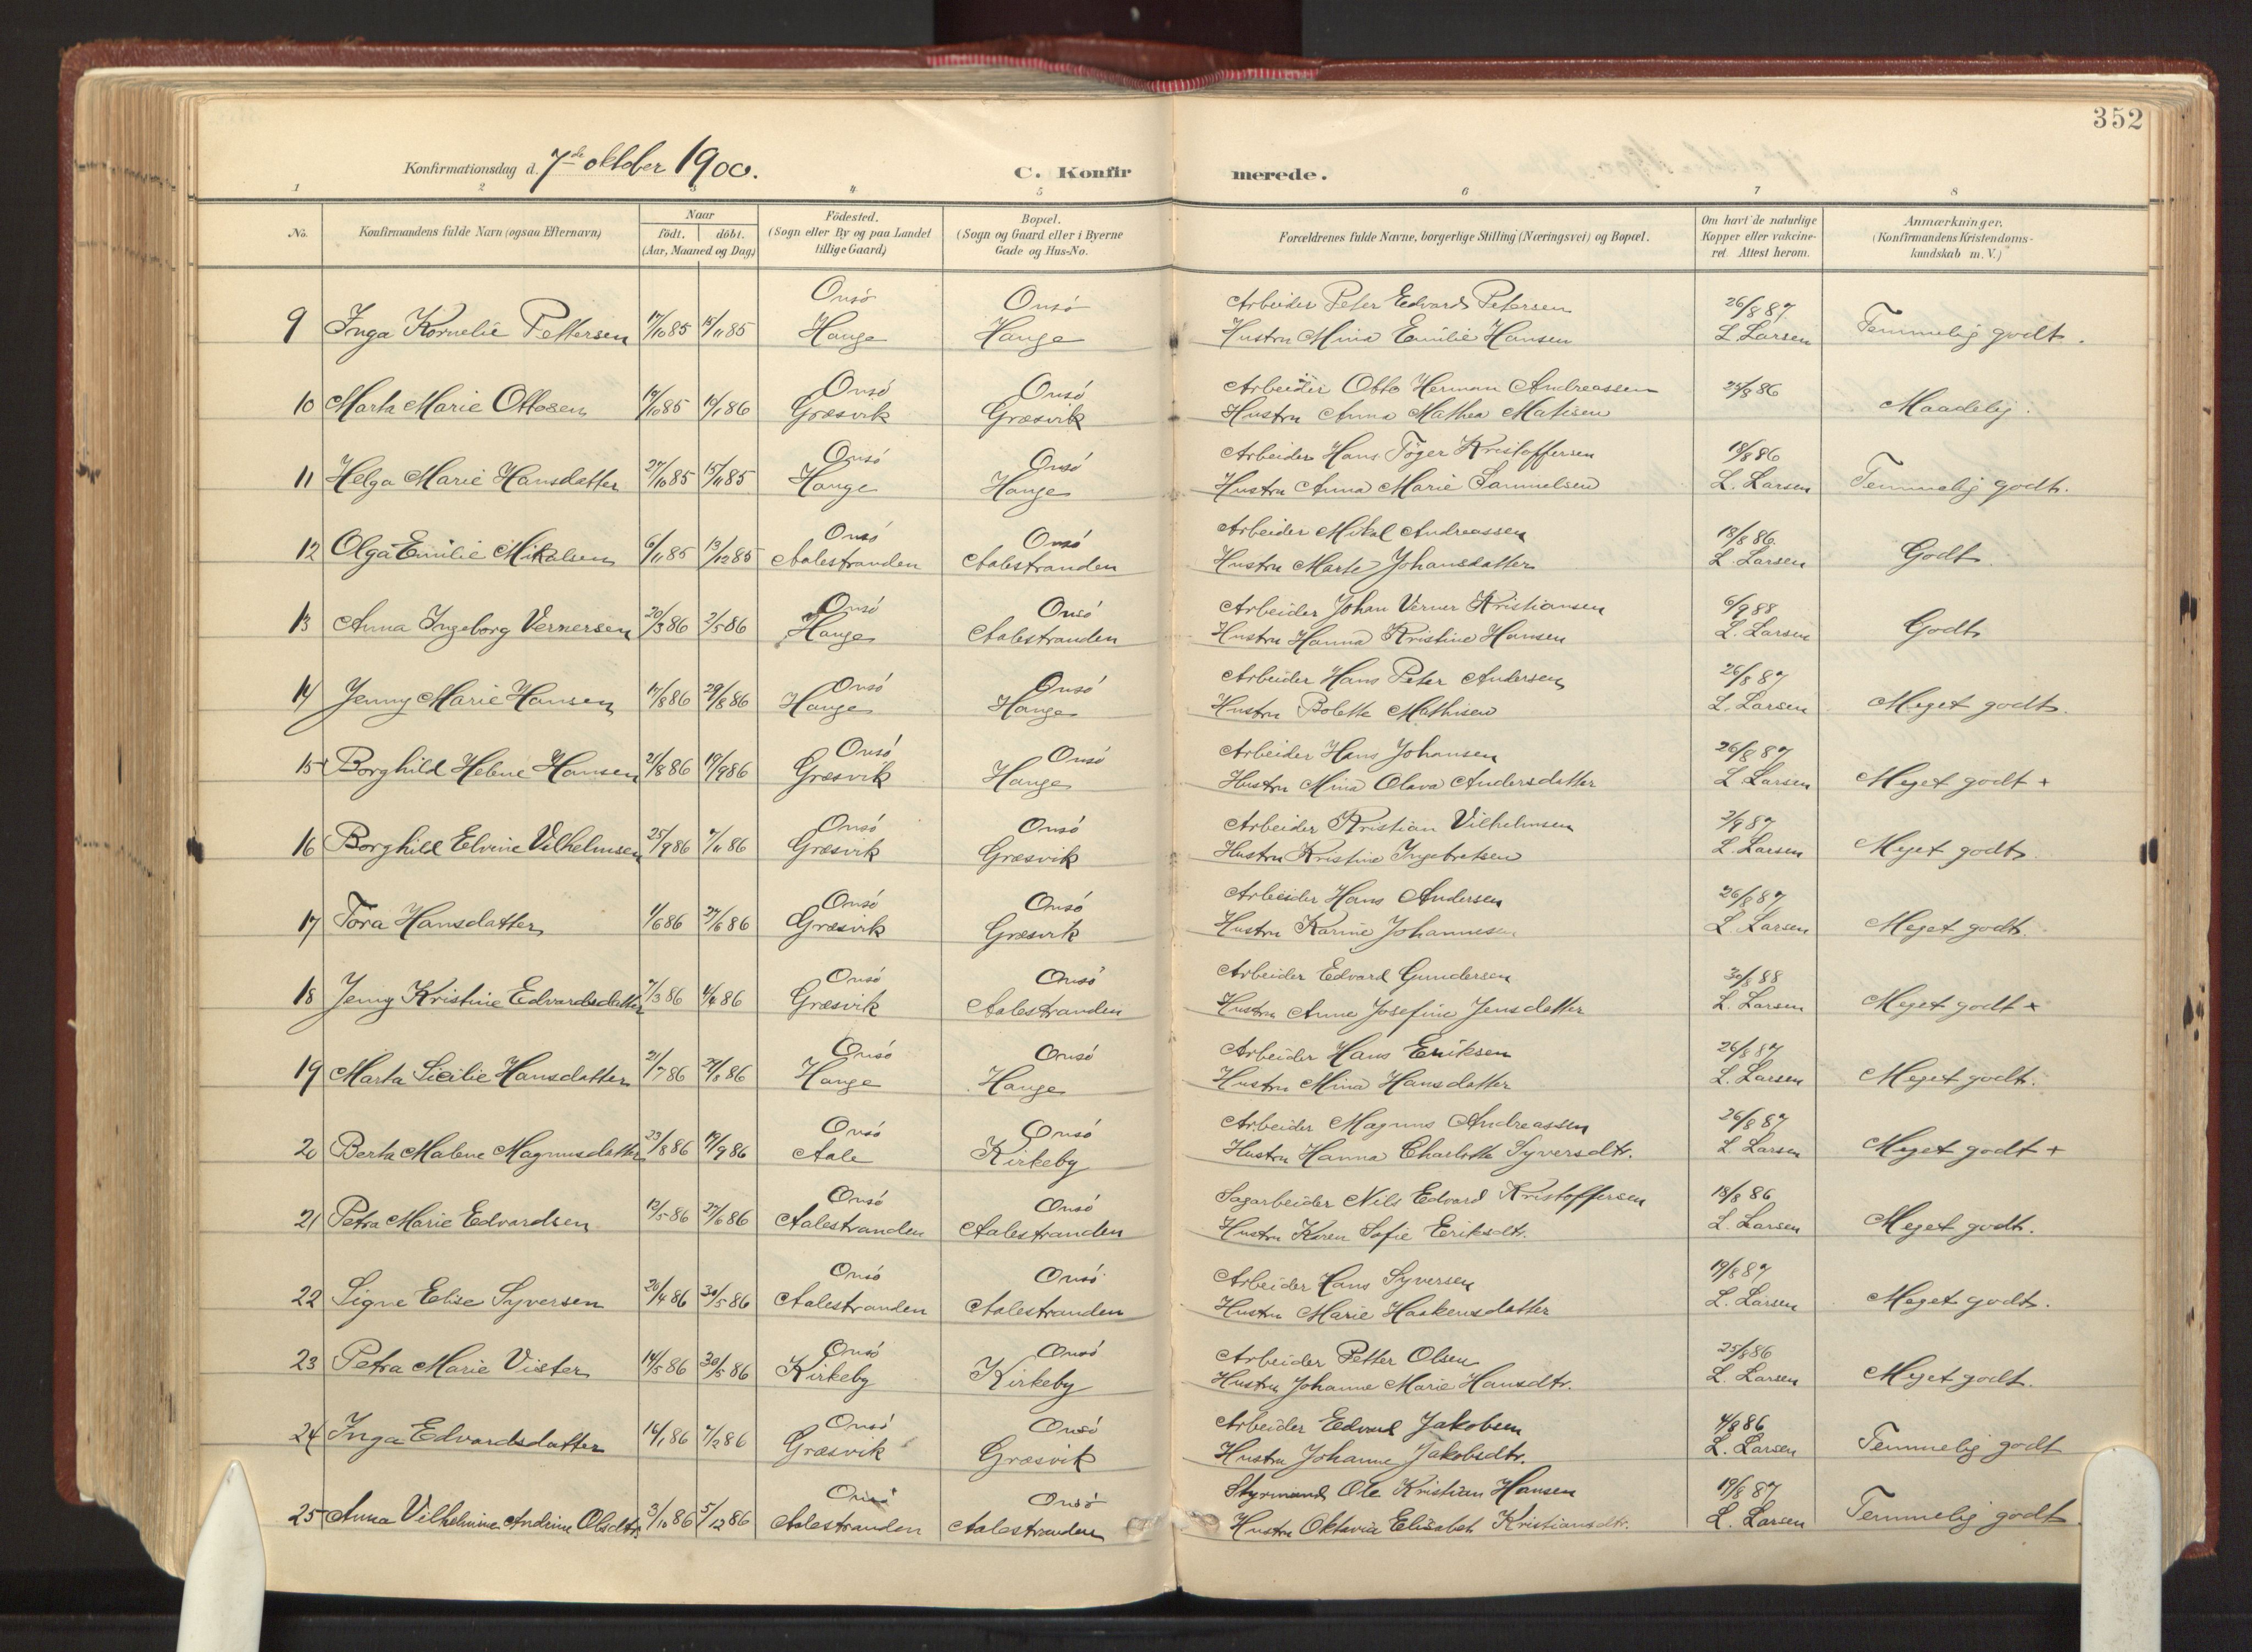 352
Konfirmationsdag d. 7de oktober 1900.
C. Konfirmerede.
1 2 3 4 5 6 7 8
No.
Konfirmandens fulde Navn (ogsaa Efternavn)
Naar
födt. döbt.
(Aar, Maaned og Dag)
Födested.
(Sogn eller By og paa Landet
tillige Gaard)
Bopæl.
(Sogn og Gaard eller i Byerne
Gade og Hus-No.
Forældrenes fulde Navne, borgerlige Stilling (Næringsvei) og Bopæl.
Om havt de naturlige
Kopper eller vakcine-
ret. Attest herom.
Anmærkninger.
(Konfirmandens Kristendoms-
kundskab m. V.)
Onsö Onsö Arbeider Peter Edvard Petersen 26/8 87
9 Inga Kornelie Pettersen 17/10 85 15/11 85 Hauge Hauge Hustru Mina Emilie Hansen L Larsen Temmelig godt.
Onsö Onsö Arbeider Otto Herman Andreassen 25/8 86
10 Marta Marie Ottosen 14/10 85 Græsvik Græsvik Hustru Anna Mathea Matisen Maadelig.
Onsö Onsö Arbeider Hans Töger Kristoffersen 18/8 86
11 Helga Marie Hansdatter 27/10 85 15/11 85 Hauge Hauge Hustru Anna Marie Samuelsen L. Larsen Temmelig godt.
Onsö Onsö Arbeider Mikal Andreassen 18/8 86.
12 Olga Emilie Mikalsen 6/11 85 13/12 85 Aalestranden Aalestranden Hustru Marte Johansdatter L. Larsen Godt.
Onsö Onsö Arbeider Johan Verner Kristiansen 6/9 88
13 Anna Ingeborg Vernersen 20/3 86 2/5 86 Hauge Aalestranden Hustru Hanna Kristine Hansen L. Larsen Godt
Onsö Onsö Arbeider Hans Peter Andersen 26/8 87
14 Jenny Marie Hansen 17/8 86 29/8 86 Hauge Hauge Hustru Bolette Mathisen L. Larsen Meget godt.
Onsö Onsö Arbeider Hans Johansen 26/8 87
15 Borghild Helene Hansen 21/8 86 19/9 86 Græsvik Hauge Hustru Mina Olava Andersdatter L Larsen Meget godt +
Onsö Onsö Arbeider Kristian Vilhelmsen 2/9 87
16 Borghild Elvine Vilhelmsen 25/9 86 7/11 86 Græsvik Græsvik Hustru Kristine Ingebretsen L. Larsen Meget godt.
Onsö Onsö Arbeider Hans Andersen 26/8 87
17 Tora Hansdatter 1/6 86 27/6 86 Græsvik Græsvik Hustru Karine Johannesen L Larsen Meget godt.
Onsö Onsö Arbeider Edvard Gundersen 30/8 88
18 Jenny Kristine Edvardsdatter 7/3 86 Græsvik Aalestranden Hustru Anne Josefine Jensdatter L. Larsen Meget godt +
Onsö Onsö Arbeider Hans Eriksen 26/8 87
19 Marta Sicilie Hansdatter 21/7 86 29/8 86 Hauge Hauge Hustru Mina Hansdatter L. Larsen Meget godt.
Onsö Onsö Arbeider Magnus Andreassen 26/8 87
20 Berta Malene Magnusdatter 23/8 86 19/9 86 Aale Kirkeby Hustru Hanna Charlotte Syversdtr. L Larsen Meget godt +
Onsö Onsö Sagarbeider Nils Edvard Kristoffersen 18/8 86
21 Petra Marie Edvardsen 12/5 86 27/6 86 Aalestranden Aalestranden Hustru Karen Sofie Eriksdtr. L. Larsen Meget godt.
Onsö Onsö Arbeider Hans Syversen 19/8 87
22 Signe Elise Syversen 20/4 86 30/5 86 Aalestranden Aalestranden Hustru Marie Haakensdatter L. Larsen Meget godt.
Onsö Onsö Arbeider Petter Olsen 25/8 86
23 Petra Marie Vister 14/5 86 30/5 86 Kirkeby Kirkeby Hustru Johanne Marie Hansdtr. L. Larsen Meget godt.
Onsö Onsö Arbeider Edvard Jakobsen 4/8 86
24 Inga Edvardsdatter 16/1 86 7/2 86 Græsvik Græsvik Hustru Johanne Jakobsdtr. L. Larsen Temmelig godt
Onsö Onsö Styrmand Ole Kristian Hansen 19/8 87
25 Anna Vilhelmine Andrine Olsdtr. 3/10 86 5/12 86 Aalestranden Aalestranden Hustru Oktavia Elisabet Kristiansdtr. L. Larsen Temmelig godt.